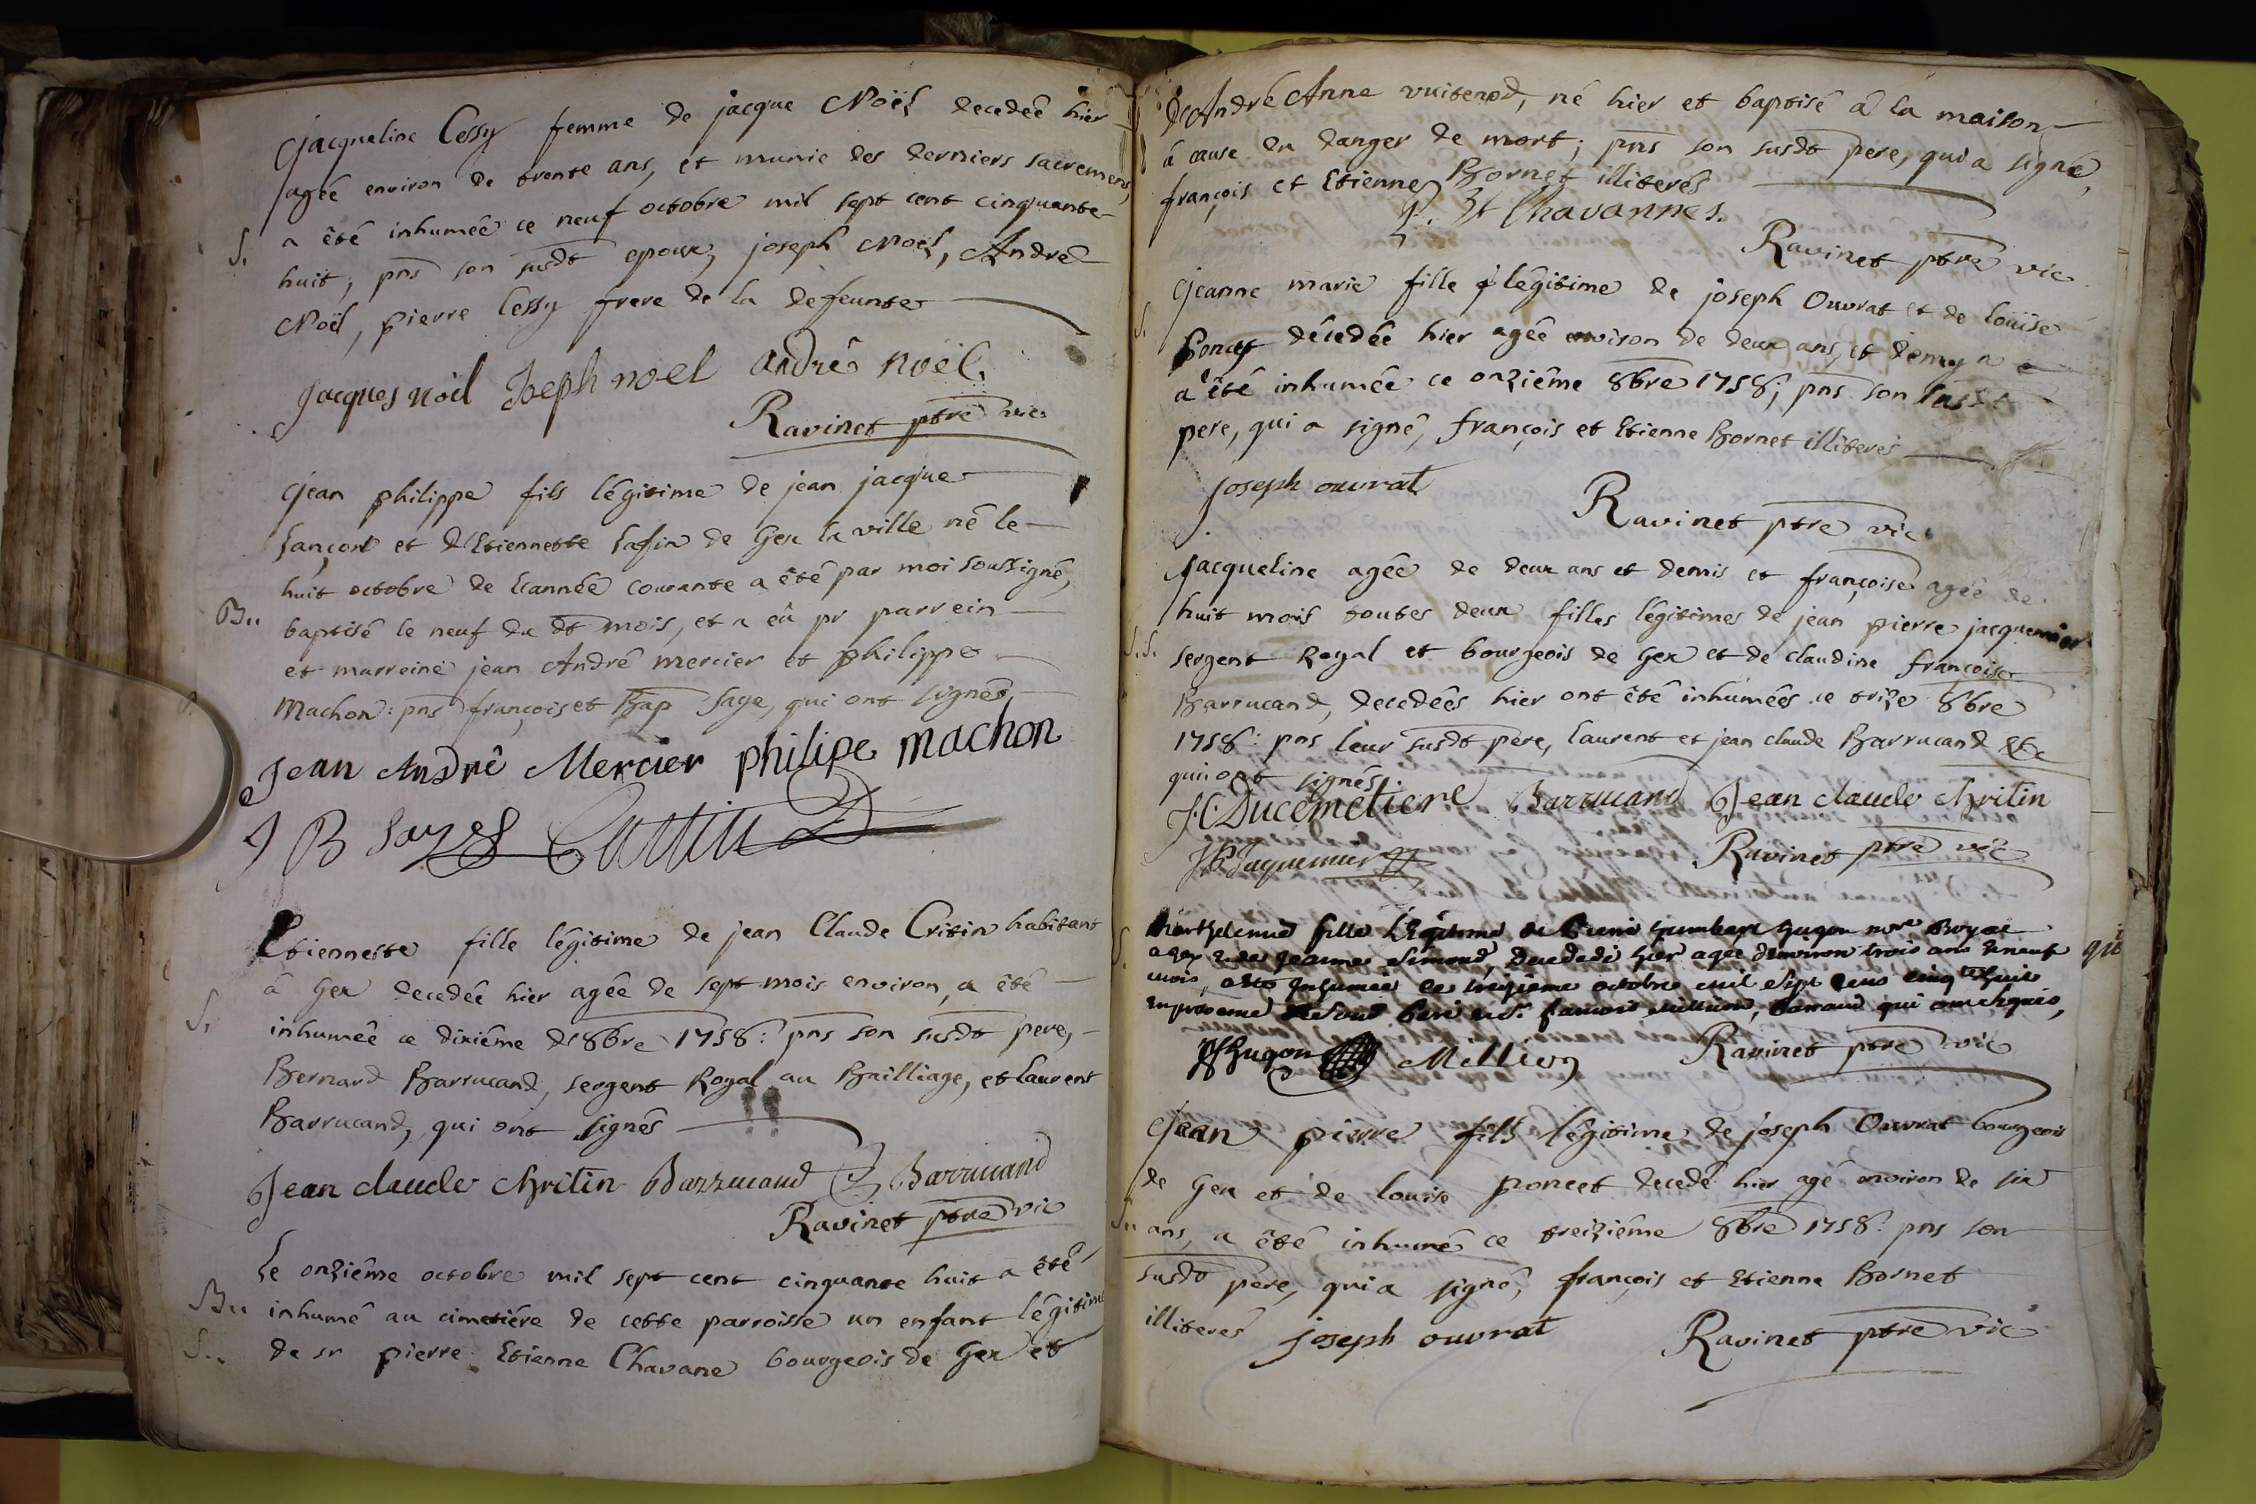 Jacqueline Cessy femme de jacque Noël decedée hier
agée environ de trente ans, et munie des derniers sacremens,
S. a été inhumée ce neuf octobre mil sept cent cinquante
huit; pns son susdt epoux, joseph Noël, André
Noël, pierre Cessy frere de la defeunte
jacques noël Joseph noel andré noël.
Ravinet ptre vic
Jean philippe fils légitime de jean jacque
Lançon et d'Etiennette Lafin de Gex la ville né le
huit octobre de l'année courante a été par moi soussigné,
B.. baptisé le neuf du dt mois, et a eû pr parrein
et marreine jean André mercier et philippe
Machon: pns françois et Bap sage, qui ont signés,
Jean André Mercier philipe machon
J B sage
Etiennette fille légitime de jean Claude Critin habitant
à Gex decedée hier agée de sept mois environ, a été
S. inhumée ce dixiême d'8bre 1758: pns son susdt pere,
Bernard Barrucand, sergent Royal au Bailliage, et laurent
Barrucand, qui ont signés
Jean claude Chritin Barrucand Barrucand
Ravinet ptre vic
Le onzième octobre mil sept cent cinquante huit a été
B.. inhumé au cimetiére de cette parroisse un enfant légitime
S.. de sr pierre Etienne Chavane bourgeois de Gex et
d'André Anne vuitenod, né hier et baptisé â la maison
à cause du danger de mort; pns son susdt pere, qui a signé,
françois et Etienne Bornet illiterés
P. Et Chavannes.
Ravinet ptre vic
Jeanne marie fille légitime de joseph Ouvrat et de loüise
S. Poncet décedée hier agée environ de deux ans et demy
a été inhumée ce onziême 8bre 1758; pns son susdt
pere, qui a signé, françois et Etienne Bornet illiterés
joseph ouvrat
Ravinet ptre vic
Jacqueline agée de deux ans et demis et françoise agée de
huit mois toutes deux filles légitimes de jean pierre jacquemier
S.S. sergent Royal et bourgeois de Gex et de claudine françoise
Barrucand, decedées hier ont été inhumées ce trize 8bre
1758: pns leur susdt pere, laurent et jean claude Barrucand &c
qui ont signés.
J. C. Ducemetiere Barrucand Jean claude Chritin
J P Jaquemier Ravinet ptre vic
fille Légitime de Pierre hugon nore Royal
S. a gex et de jeanne Simond, decedée hier agée d'environ trois ans et neuf
mois, a été Inhumée ce treizième octobre mil sept cens cinqte huit
en presence de sond pere et Sr françois Million, qui ont signés,
Hugon Million Ravinet ptre vic
Jean pierre fils légitime de joseph Ouvrat bourgeois
de Gex et de louise poncet decedé hier agé environ de six
S.. ans, a été inhumé ce treiziême 8bre 1758: pns son
susdt pere, qui a signé, françois et Etienne Bornet
illiterés joseph ouvrat Ravinet ptre vic